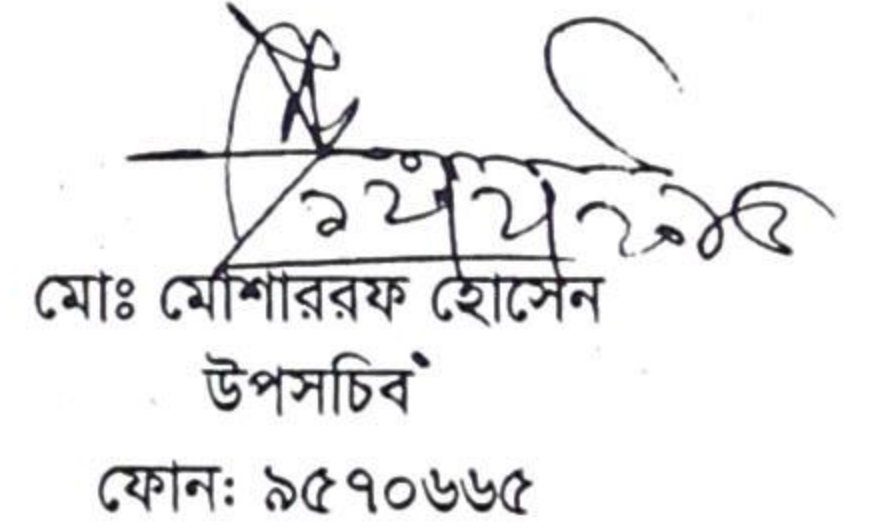 মোঃ মোশাররফ হোসেন
উপসচিব
ফোন: ৯৫৭০৬৬৫